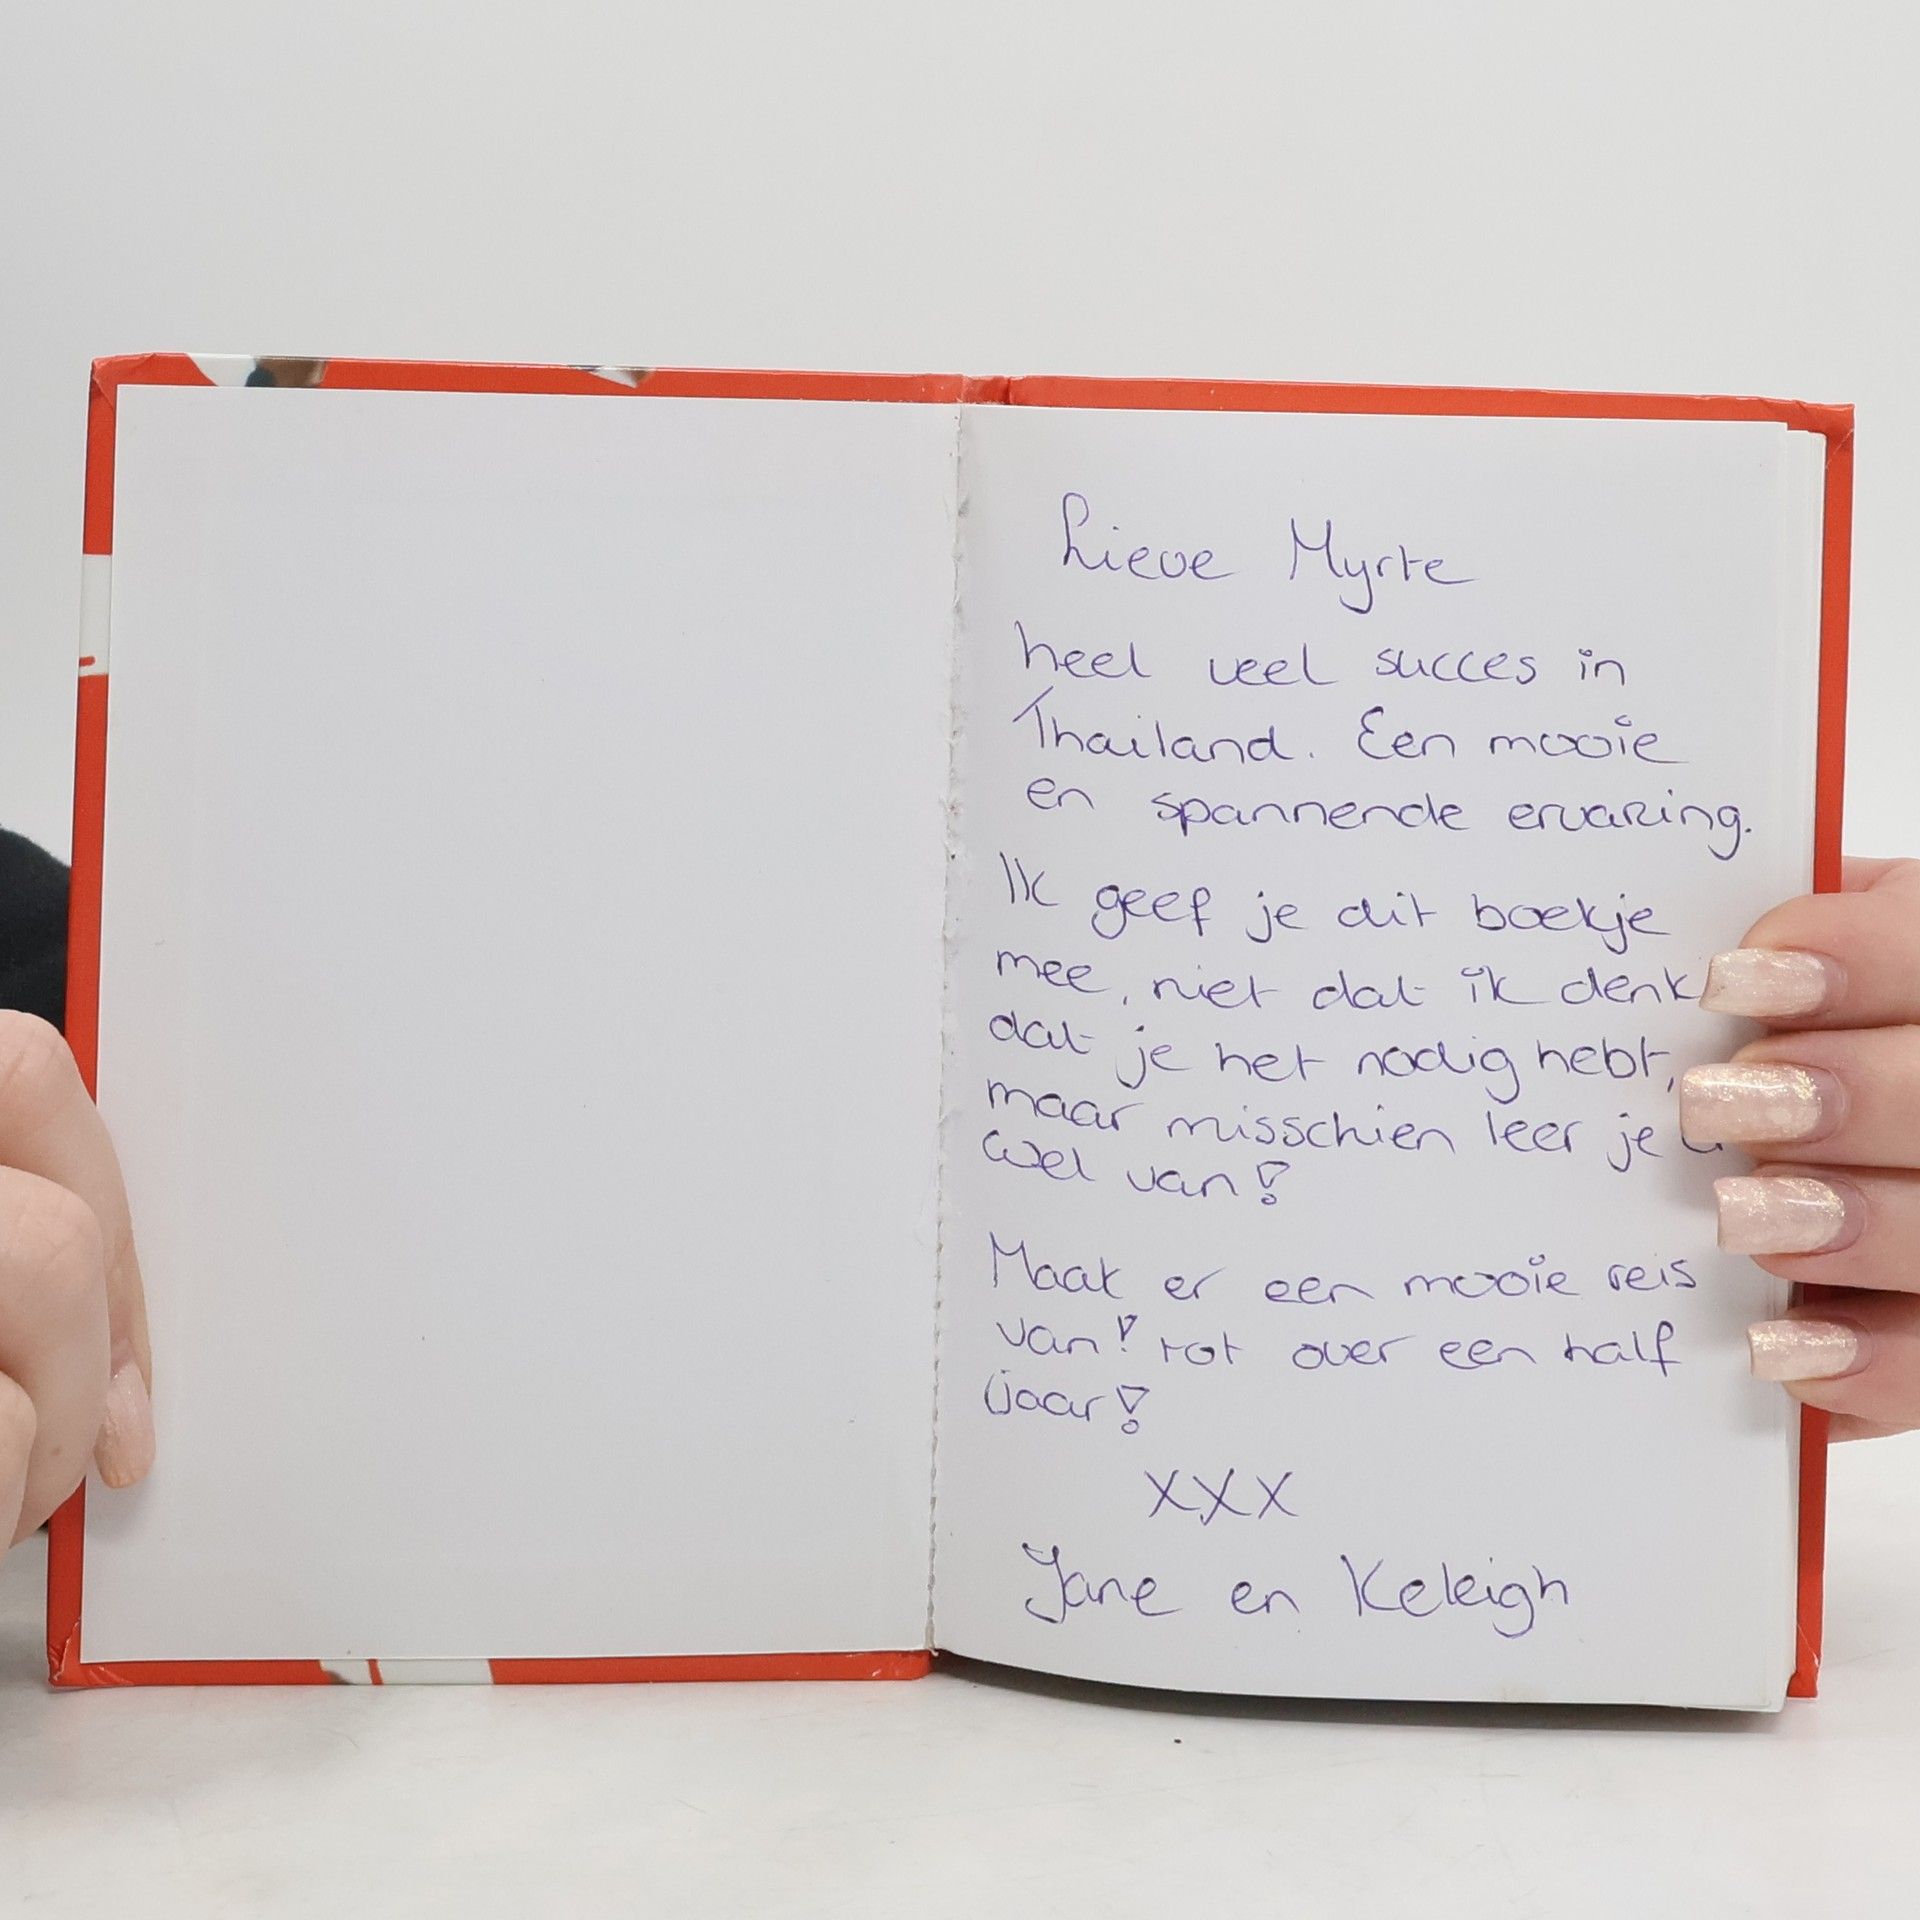 Lieve Myrte
heel veel succes in
Thailand. Een mooie
en spannende ervaring.
Ik geef je dit boekje
mee, niet dat ik denk
dat je het nodig hebt,
maar misschien leer je
wel van!
Maak er een mooie reis
van! tot over een half
jaar!
XXX
Jane en Keleigh